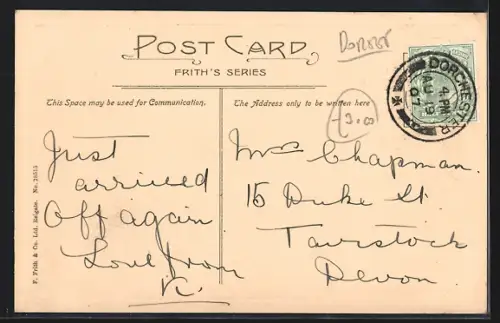 POST CARD
FRITH'S SERIES
Dorset
DORCHESTER
4. PM
AU 19
07
This Space may be used for Communication.
The Address only to be written here
-3.00
Just
arrived
Off again
Love from
K.
Mrs Chapman.
15 Duke St.
Tavistock
Devon.
F. Frith & Co. Ltd. Reigate. No.